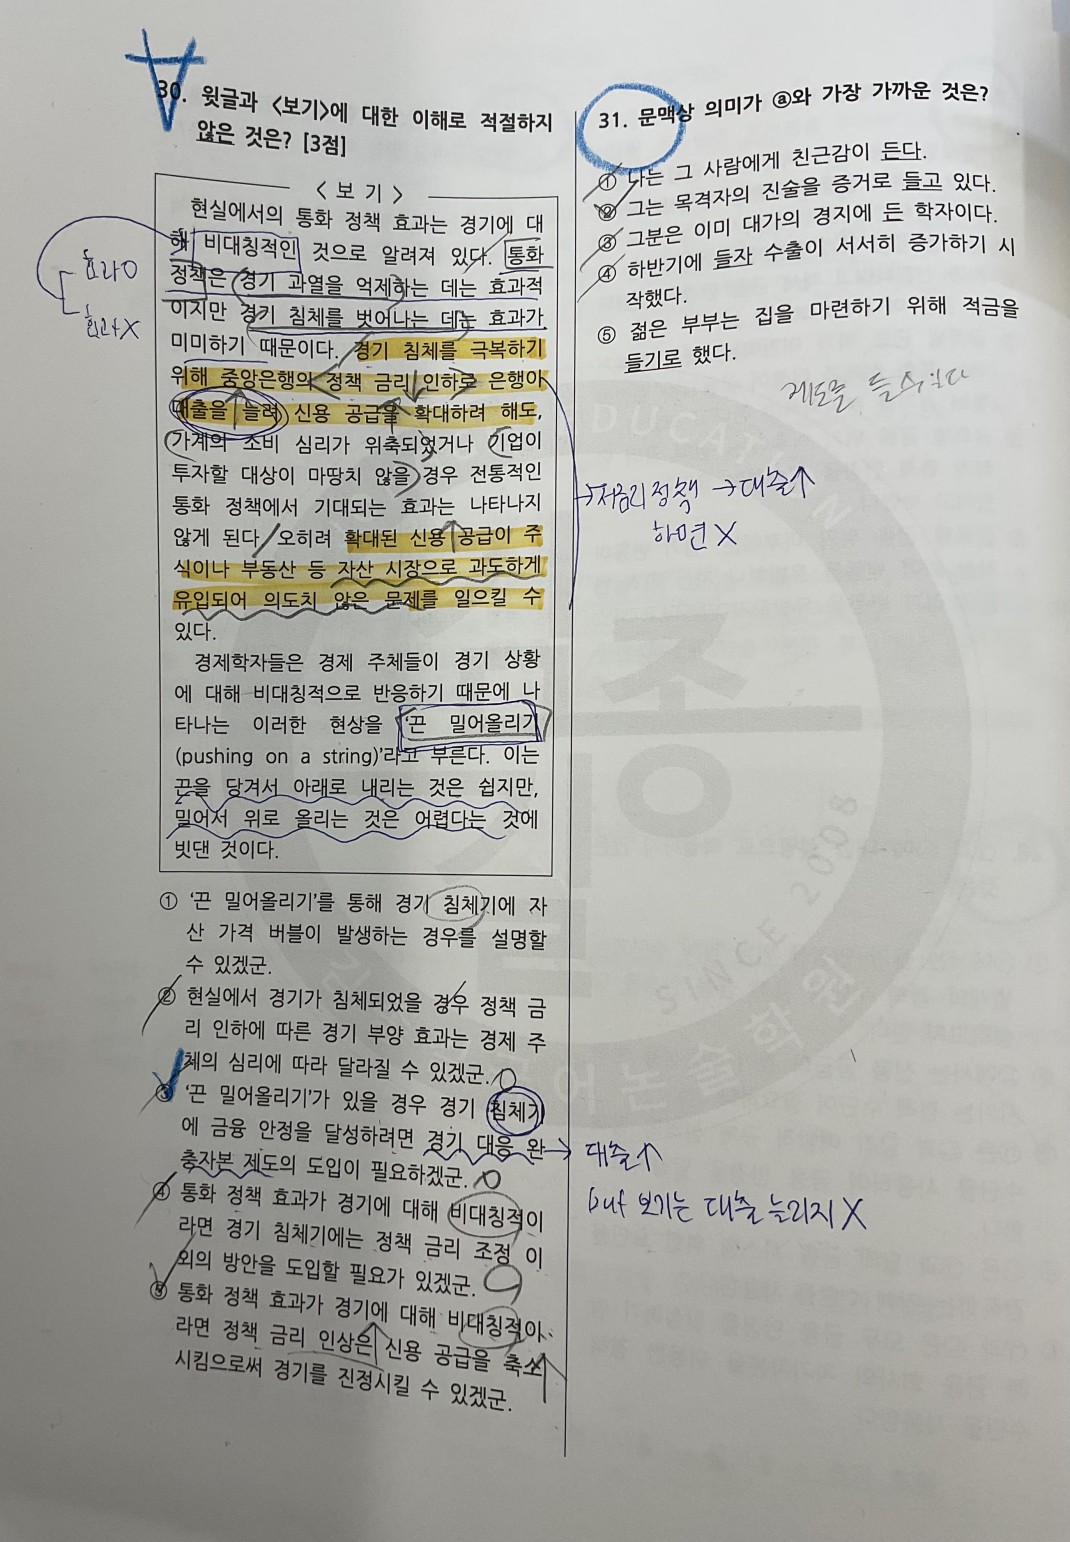 30. 윗글과 <보기>에 대한 이해로 적절하지
않은 것은? [3점]
< 보 기 >
현실에서의 통화 정책 효과는 경기에 대
해 비대칭적인 것으로 알려져 있다. 통화
정책은 경기 과열을 억제하는 데는 효과적
이지만 경기 침체를 벗어나는 데는 효과가
미미하기 때문이다. 경기 침체를 극복하기
위해 중앙은행의 정책 금리 인하로 은행이
대출을 늘려 신용 공급을 확대하려 해도,
가계의 소비 심리가 위축되었거나 기업이
투자할 대상이 마땅치 않을 경우 전통적인
통화 정책에서 기대되는 효과는 나타나지
않게 된다. 오히려 확대된 신용 공급이 주
식이나 부동산 등 자산 시장으로 과도하게
유입되어 의도치 않은 문제를 일으킬 수
있다.
경제학자들은 경제 주체들이 경기 상황
에 대해 비대칭적으로 반응하기 때문에 나
타나는 이러한 현상을 ‘끈 밀어올리기
(pushing on a string)’라고 부른다. 이는
끈을 당겨서 아래로 내리는 것은 쉽지만,
밀어서 위로 올리는 것은 어렵다는 것에
빗댄 것이다.
효과O
효과X
① ‘끈 밀어올리기’를 통해 경기 침체기에 자
산 가격 버블이 발생하는 경우를 설명할
수 있겠군.
② 현실에서 경기가 침체되었을 경우 정책 금
리 인하에 따른 경기 부양 효과는 경제 주
체의 심리에 따라 달라질 수 있겠군. O
③ ‘끈 밀어올리기’가 있을 경우 경기 침체기
에 금융 안정을 달성하려면 경기 대응 완
충자본 제도의 도입이 필요하겠군.
④ 통화 정책 효과가 경기에 대해 비대칭적이
라면 경기 침체기에는 정책 금리 조정 이
외의 방안을 도입할 필요가 있겠군.
⑤ 통화 정책 효과가 경기에 대해 비대칭적이
라면 정책 금리 인상은 신용 공급을 축소
시킴으로써 경기를 진정시킬 수 있겠군.
31. 문맥상 의미가 ⓐ와 가장 가까운 것은?
① 나는 그 사람에게 친근감이 든다.
② 그는 목격자의 진술을 증거로 들고 있다.
③ 그분은 이미 대가의 경지에 든 학자이다.
④ 하반기에 들자 수출이 서서히 증가하기 시
작했다.
⑤ 젊은 부부는 집을 마련하기 위해 적금을
들기로 했다.
제도를 들 수 있다
→저금리 정책 → 대출↑
하면 X
→ 대출↑
but 보기는 대출 늘리지 X
SINCE 2008